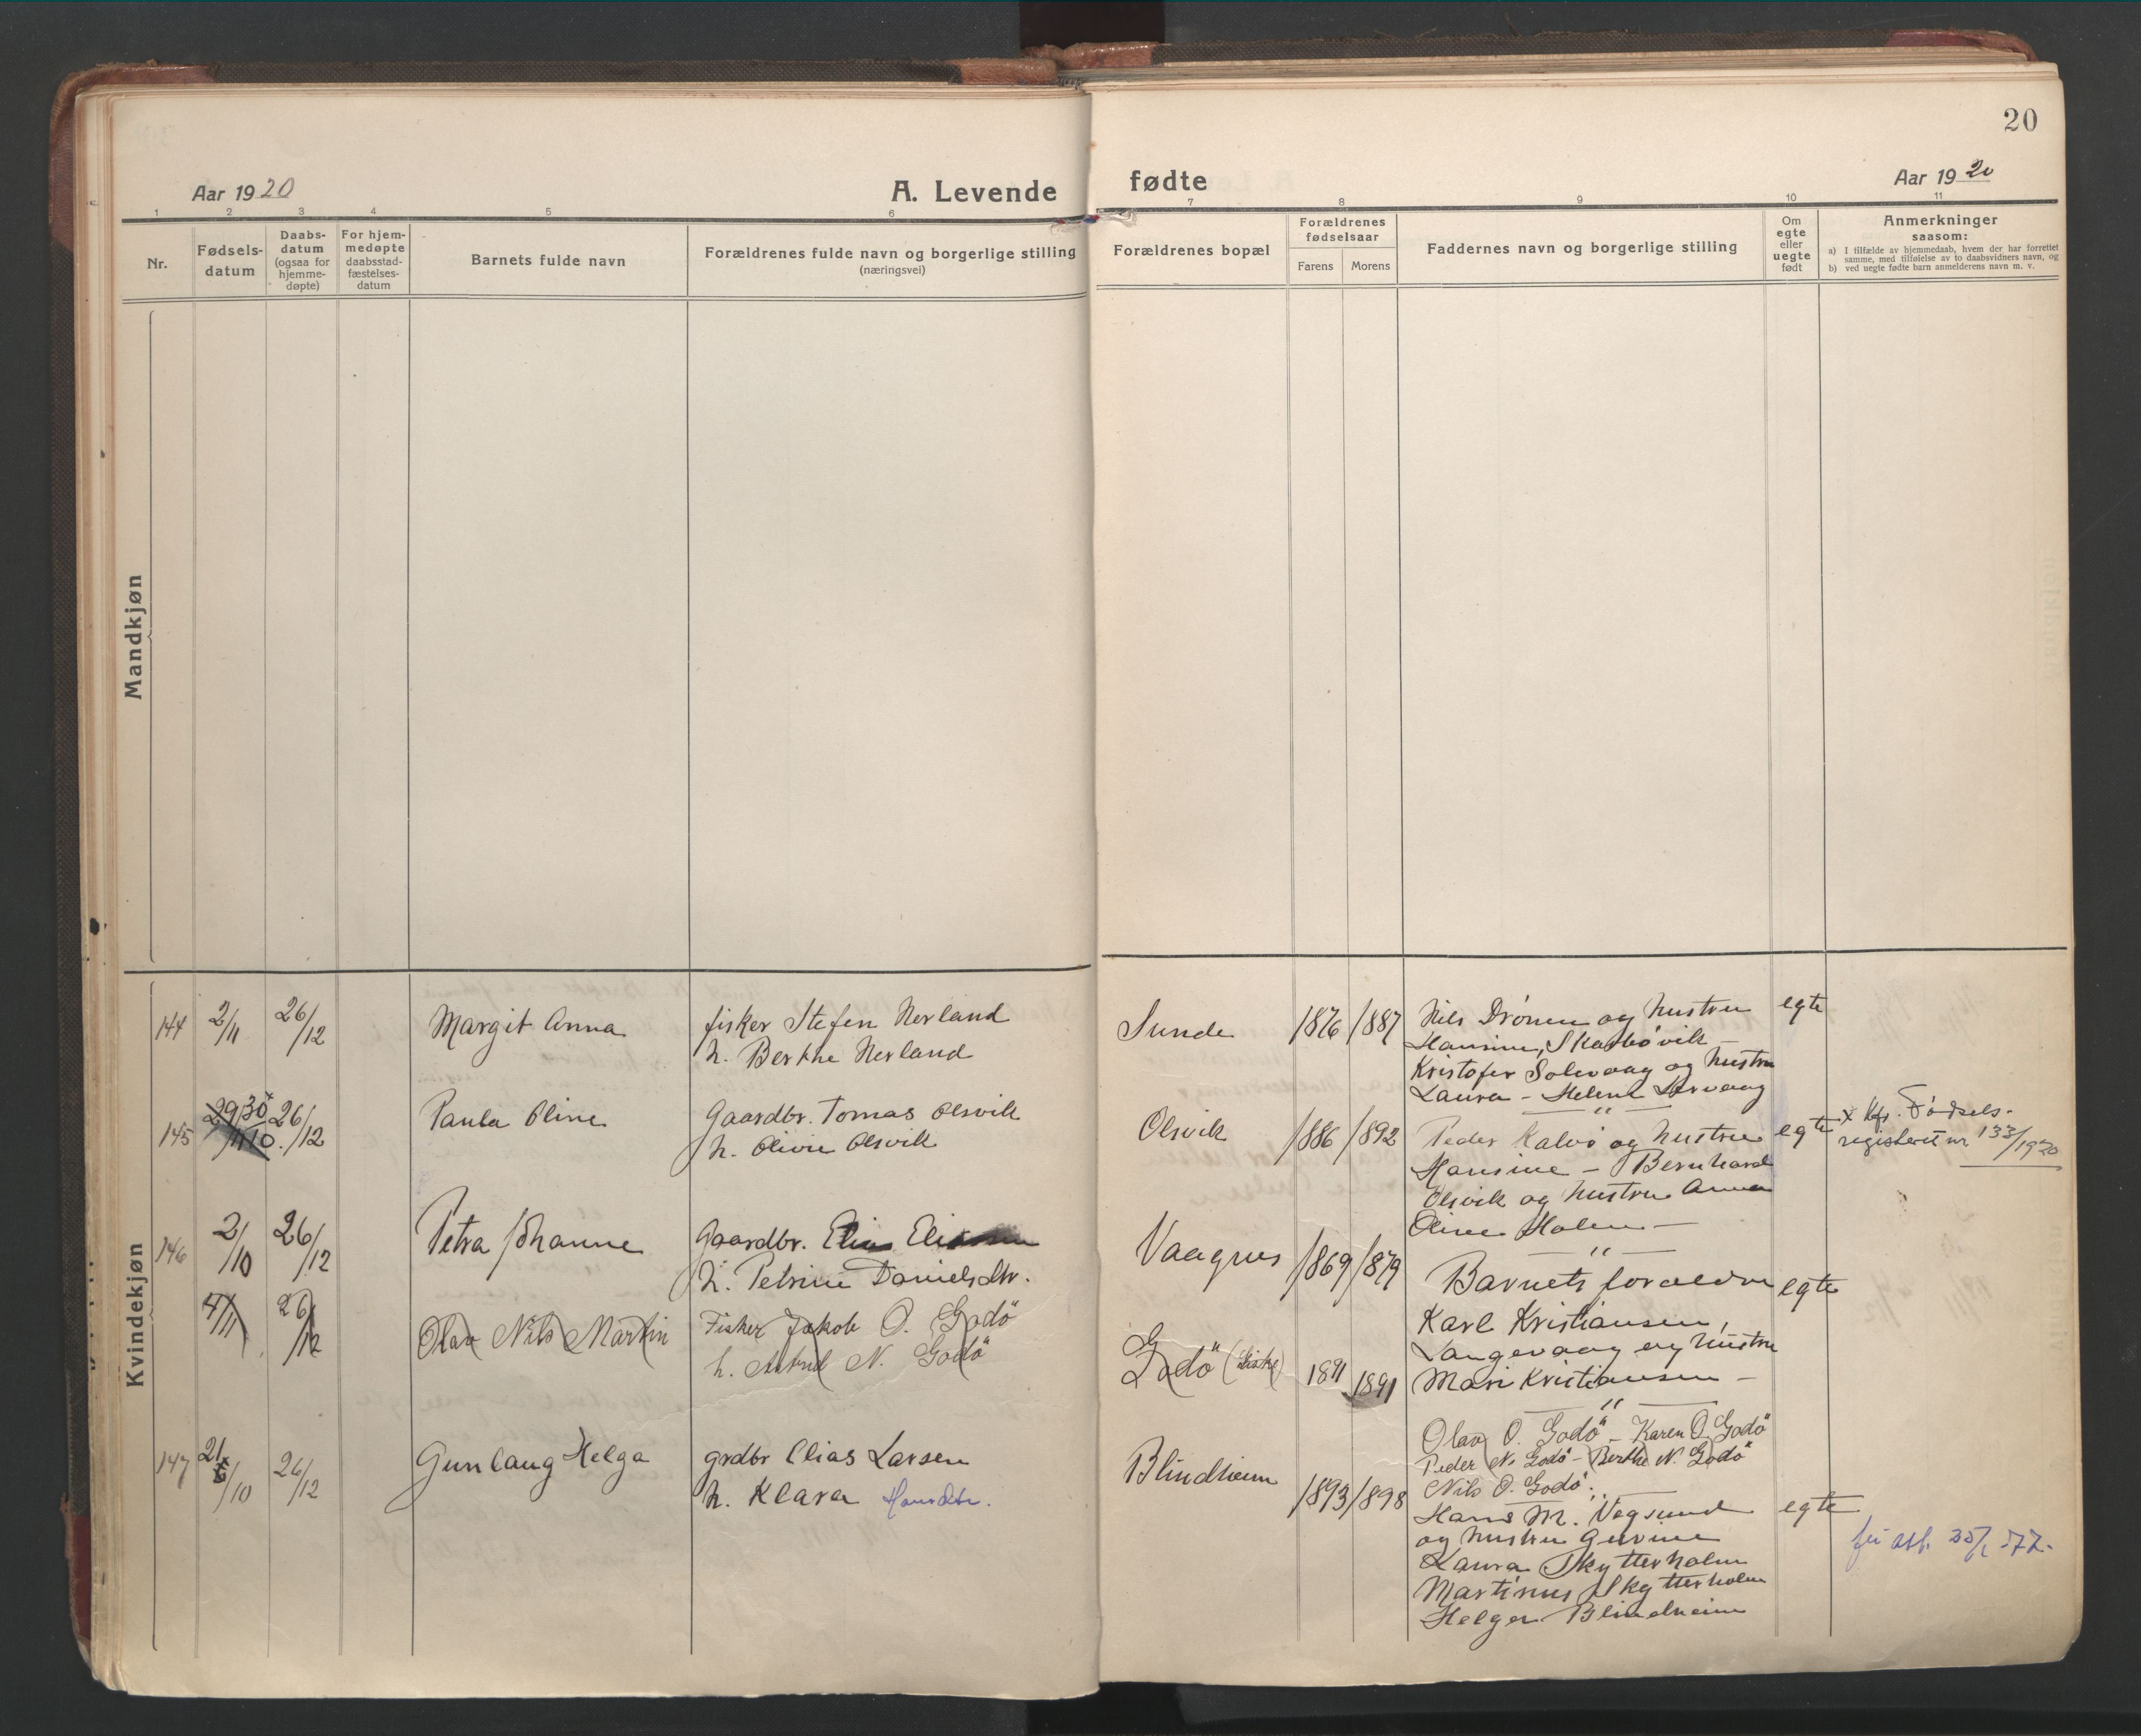 20
Aar 1920
A. Levende
fødte
Aar 1920
1 2 3 4 5 6 7 8 9 10 11
Nr.
Fødsels-
datum
Daabs-
datum
(ogsaa for
hjemme-
døpte)
For hjem-
medøpte
daabsstad-
fæstelses-
datum
Barnets fulde navn
Forældrenes fulde navn og borgerlige stilling
(næringsvei)
Forældrenes bopæl
Forældrenes
fødselsaar
Farens Morens
Faddernes navn og borgerlige stilling
Om
egte
eller
uegte
født
Anmerkninger
saasom:
a) I tilfælde av hjemmedaab, hvem der har forrettet
samme, med tilføielse av to daabsvidners navn, og
b) ved uegte fødte barn anmelderens navn m. v.
Mandkjøn
Kvindekjøn
144 2/11 26/12 Margit Anna
fisker Stefen Nerland
h. Berthe Nerland
Sunde 1876 1887
Nils Drönen og hustru
Hansine, Skarbövik -
Kristofer Solevaag og hustru
Laura - Helene
egte
145 30/10 26/12 Paula Oline
Gaardbr. Tomas Olsvik
h. Olivie Olsvik
Olsvik 1886 1892
Peder Kalvö og hustru
Hansine - Bernhard
Olsvik og hustru Anna
Oline Holen -
egte
x Kfr. Fødsels-
registeret nr 133/1920
146 2/10 26/12 Petra Johanne
Gaardbr. Elias
h. Petrine Danielsdtr.
Vaagnes 1869 1879
Barnets foraeldre
Karl Kristiansen,
Langevaag og hustru
Mari Kristiansen -
egte
4/11 26/12 Olav Nils Martin
Fisker Jakob O. Godö
h. Astrid N. Godö
Godö (Giske) 1891 1891
Olav O. Godö - Karen O. Godö
Peder N. Godö - Berthe N. Godö
Nils O. Godö.
147 21/10 26/12 Gunlaug Helga
grdbr Elias Larsen
h. Klara Hansdtr.
Blindheim 1893 1898
Hans M. Vegsund
og hustru Gurine
Laura Skytterholm
Martinus Skytterholm
Helger Blindheim
egte